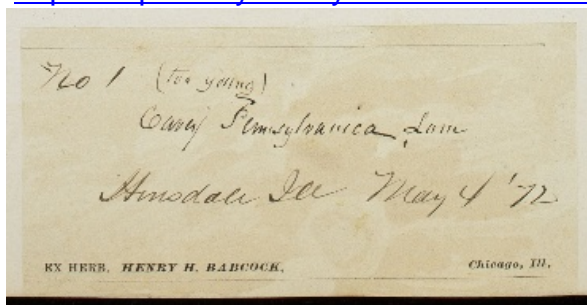 No 1 (too young)
Carex Pennsylvanica Lam
Hinsdale Ill May 4 '72
EX HERB. HENRY H. BABCOCK, Chicago, Ill.